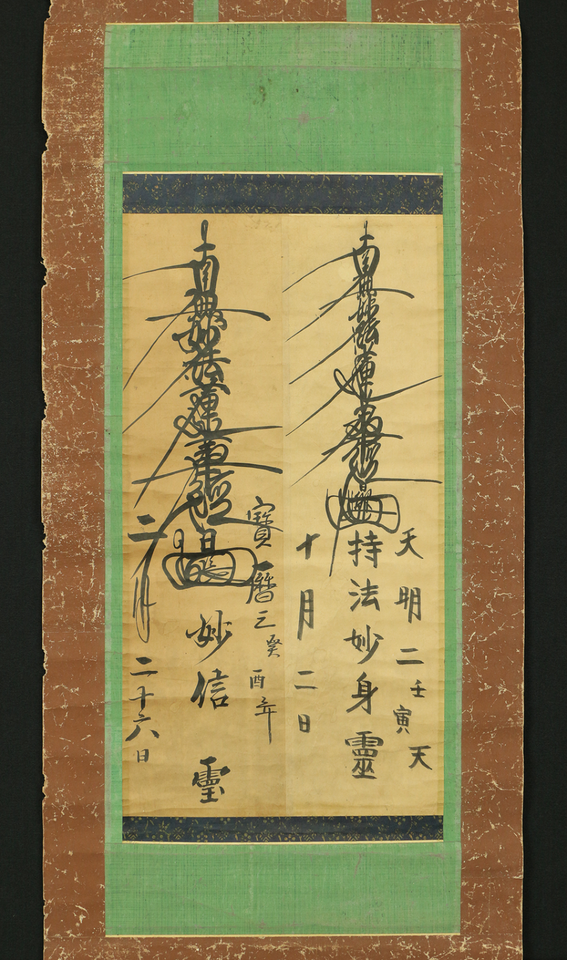 天明二壬寅天
南無妙法蓮華經
持法妙身靈
十月二日
寶暦三癸酉年
南無妙法蓮華經
妙信霊
二月二十六日